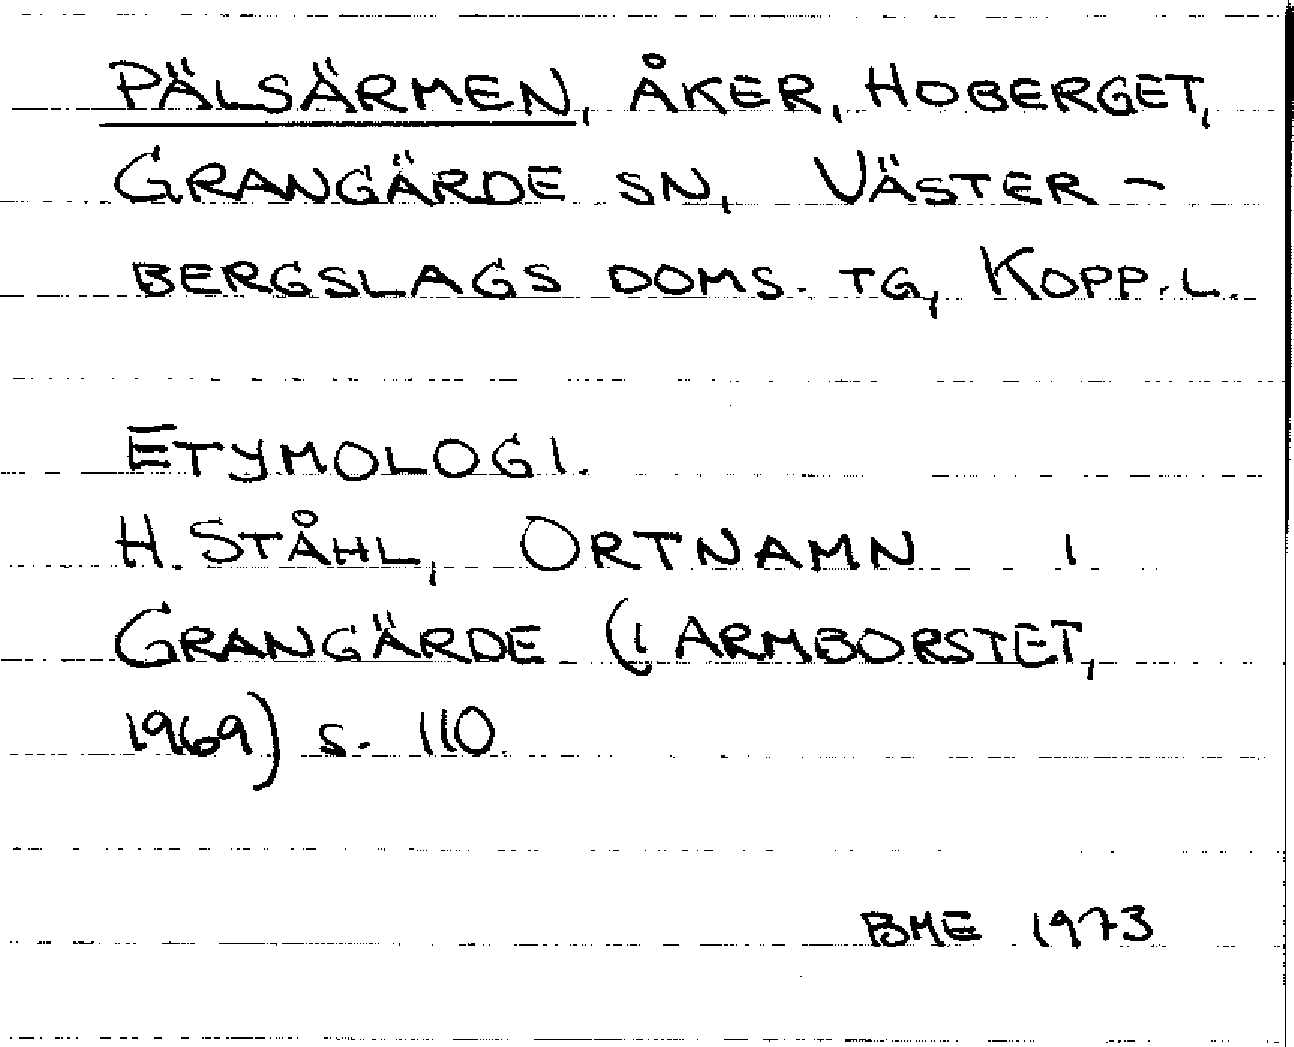 PÄLSÄRMEN, ÅKER, HOBERGET,
GRANGÄRDE SN, VÄSTER-
BERGSLAGS DOMS. TG, KOPP.L.
ETYMOLOGI.
H. STÅHL, ORTNAMN I
GRANGÄRDE (I ARMBORSTET,
1969) S. 110.
BME 1973